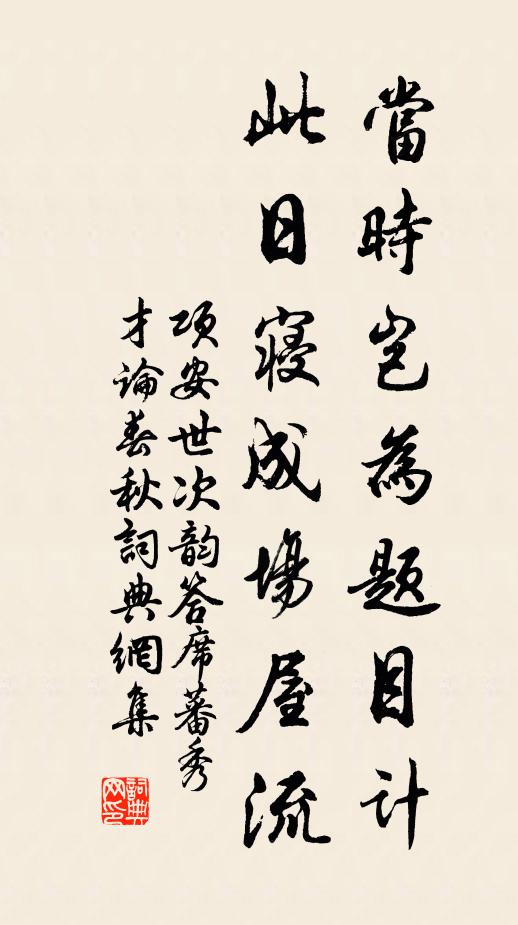 當時豈為題目計
此日寝成場屋流
项安世次韵答席蕃秀
才論春秋詞典網集
詞典
网印